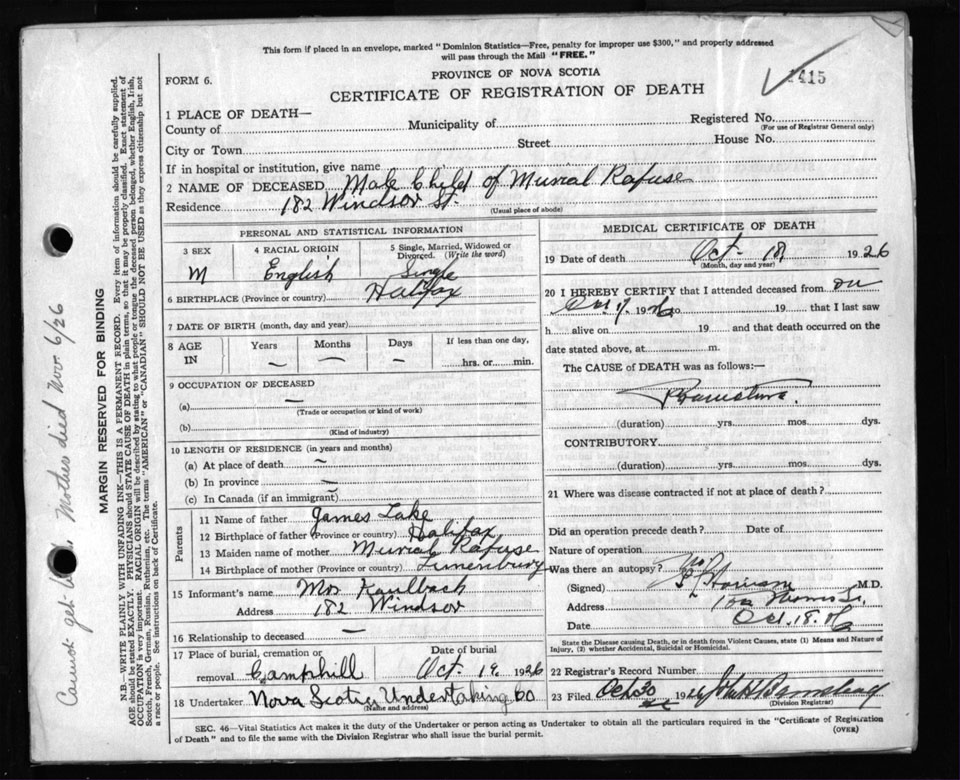 This form if placed in an envelope, marked "Dominion Statistics—Free, penalty for improper use $300," and properly addressed
will pass through the Mail "FREE."
FORM 6.
PROVINCE OF NOVA SCOTIA
1415
CERTIFICATE OF REGISTRATION OF DEATH
1 PLACE OF DEATH—
County of
Municipality of
Registered No.
(For use of Registrar General only)
City or Town
Street
House No.
If in hospital or institution, give name
2 NAME OF DECEASED Male Child of Murial Rafuse
Residence 182 Windsor St.
(Usual place of abode)
PERSONAL AND STATISTICAL INFORMATION
3 SEX
M
4 RACIAL ORIGIN
English
5 Single, Married, Widowed or
Divorced. (Write the word)
Single
6 BIRTHPLACE (Province or country) Halifax
7 DATE OF BIRTH (month, day and year)
8 AGE
IN
Years
—
Months
—
Days
—
If less than one day,
hrs. or min.
9 OCCUPATION OF DECEASED
(a) —
(Trade or occupation or kind of work)
(b)
(Kind of industry)
10 LENGTH OF RESIDENCE (in years and months)
(a) At place of death —
(b) In province —
(c) In Canada (if an immigrant)
Parents
11 Name of father James Lake
12 Birthplace of father (Province or country) Halifax
13 Maiden name of mother Murial Rafuse
14 Birthplace of mother (Province or country) Lunenburg
15 Informant's name Mrs Kaulbach
Address 182 Windsor
16 Relationship to deceased —
17 Place of burial, cremation or
removal Camphill
Date of burial
Oct 19 1926
18 Undertaker Nova Scotia Undertaking Co
(Name and address)
MEDICAL CERTIFICATE OF DEATH
19 Date of death Oct 1926
(Month, day and year)
20 I HEREBY CERTIFY that I attended deceased from on
19 to 19 that I last saw
h alive on 19 and that death occurred on
date stated above, at m.
The CAUSE OF DEATH was as follows:—
Premature.
(duration) yrs. mos. dys.
CONTRIBUTORY
(duration) yrs. mos. dys.
21 Where was disease contracted if not at place of death?
Did an operation precede death? Date of
Nature of operation
Was there an autopsy? no
(Signed) M.D.
Address
Date Oct. 18.
State the Disease causing Death, or in death from Violent Causes, state (1) Means and Nature of
Injury, (2) whether Accidental, Suicidal or Homicidal.
22 Registrar's Record Number
23 Filed Oct 1926
(Division Registrar)
SEC. 46—Vital Statistics Act makes it the duty of the Undertaker or person acting as Undertaker to obtain all the particulars required in the "Certificate of Registration
of Death" and to file the same with the Division Registrar who shall issue the burial permit.
(OVER)
MARGIN RESERVED FOR BINDING
N.B.—WRITE PLAINLY WITH UNFADING INK—THIS IS A PERMANENT RECORD. Every item of information should be carefully supplied.
AGE should be stated EXACTLY. PHYSICIANS should STATE CAUSE OF DEATH in plain terms, so that it may be properly classified. Exact statement of
OCCUPATION is very important. RACIAL ORIGIN will be described by stating to what people or tongue the deceased person belonged, whether English, Irish,
Scotch, French, German, Russian, Ruthenian, etc. The terms "AMERICAN" or "CANADIAN" SHOULD NOT BE USED as they express citizenship but not
a race or people. See instructions on back of Certificate.
Cannot get Mother died Nov 6/26